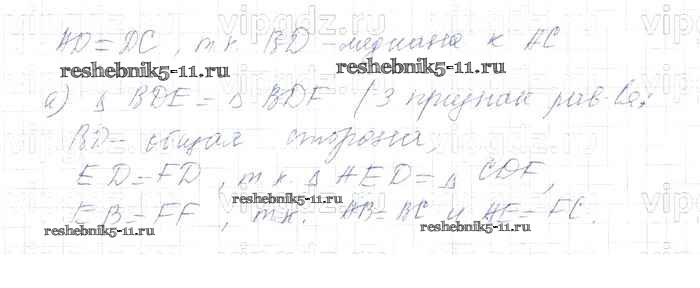 AD = DC, т.к. BD - медиана к AC
reshebnik5-11.ru reshebnik5-11.ru
а) △ BDE = △ BDF (3 признак рав-ва:
BD - общая сторона,
ED = FD, т.к. △ AED = △ CDF,
reshebnik5-11.ru
EB = FF, т.к. AB = BC и AE = FC.
reshebnik5-11.ru reshebnik5-11.ru